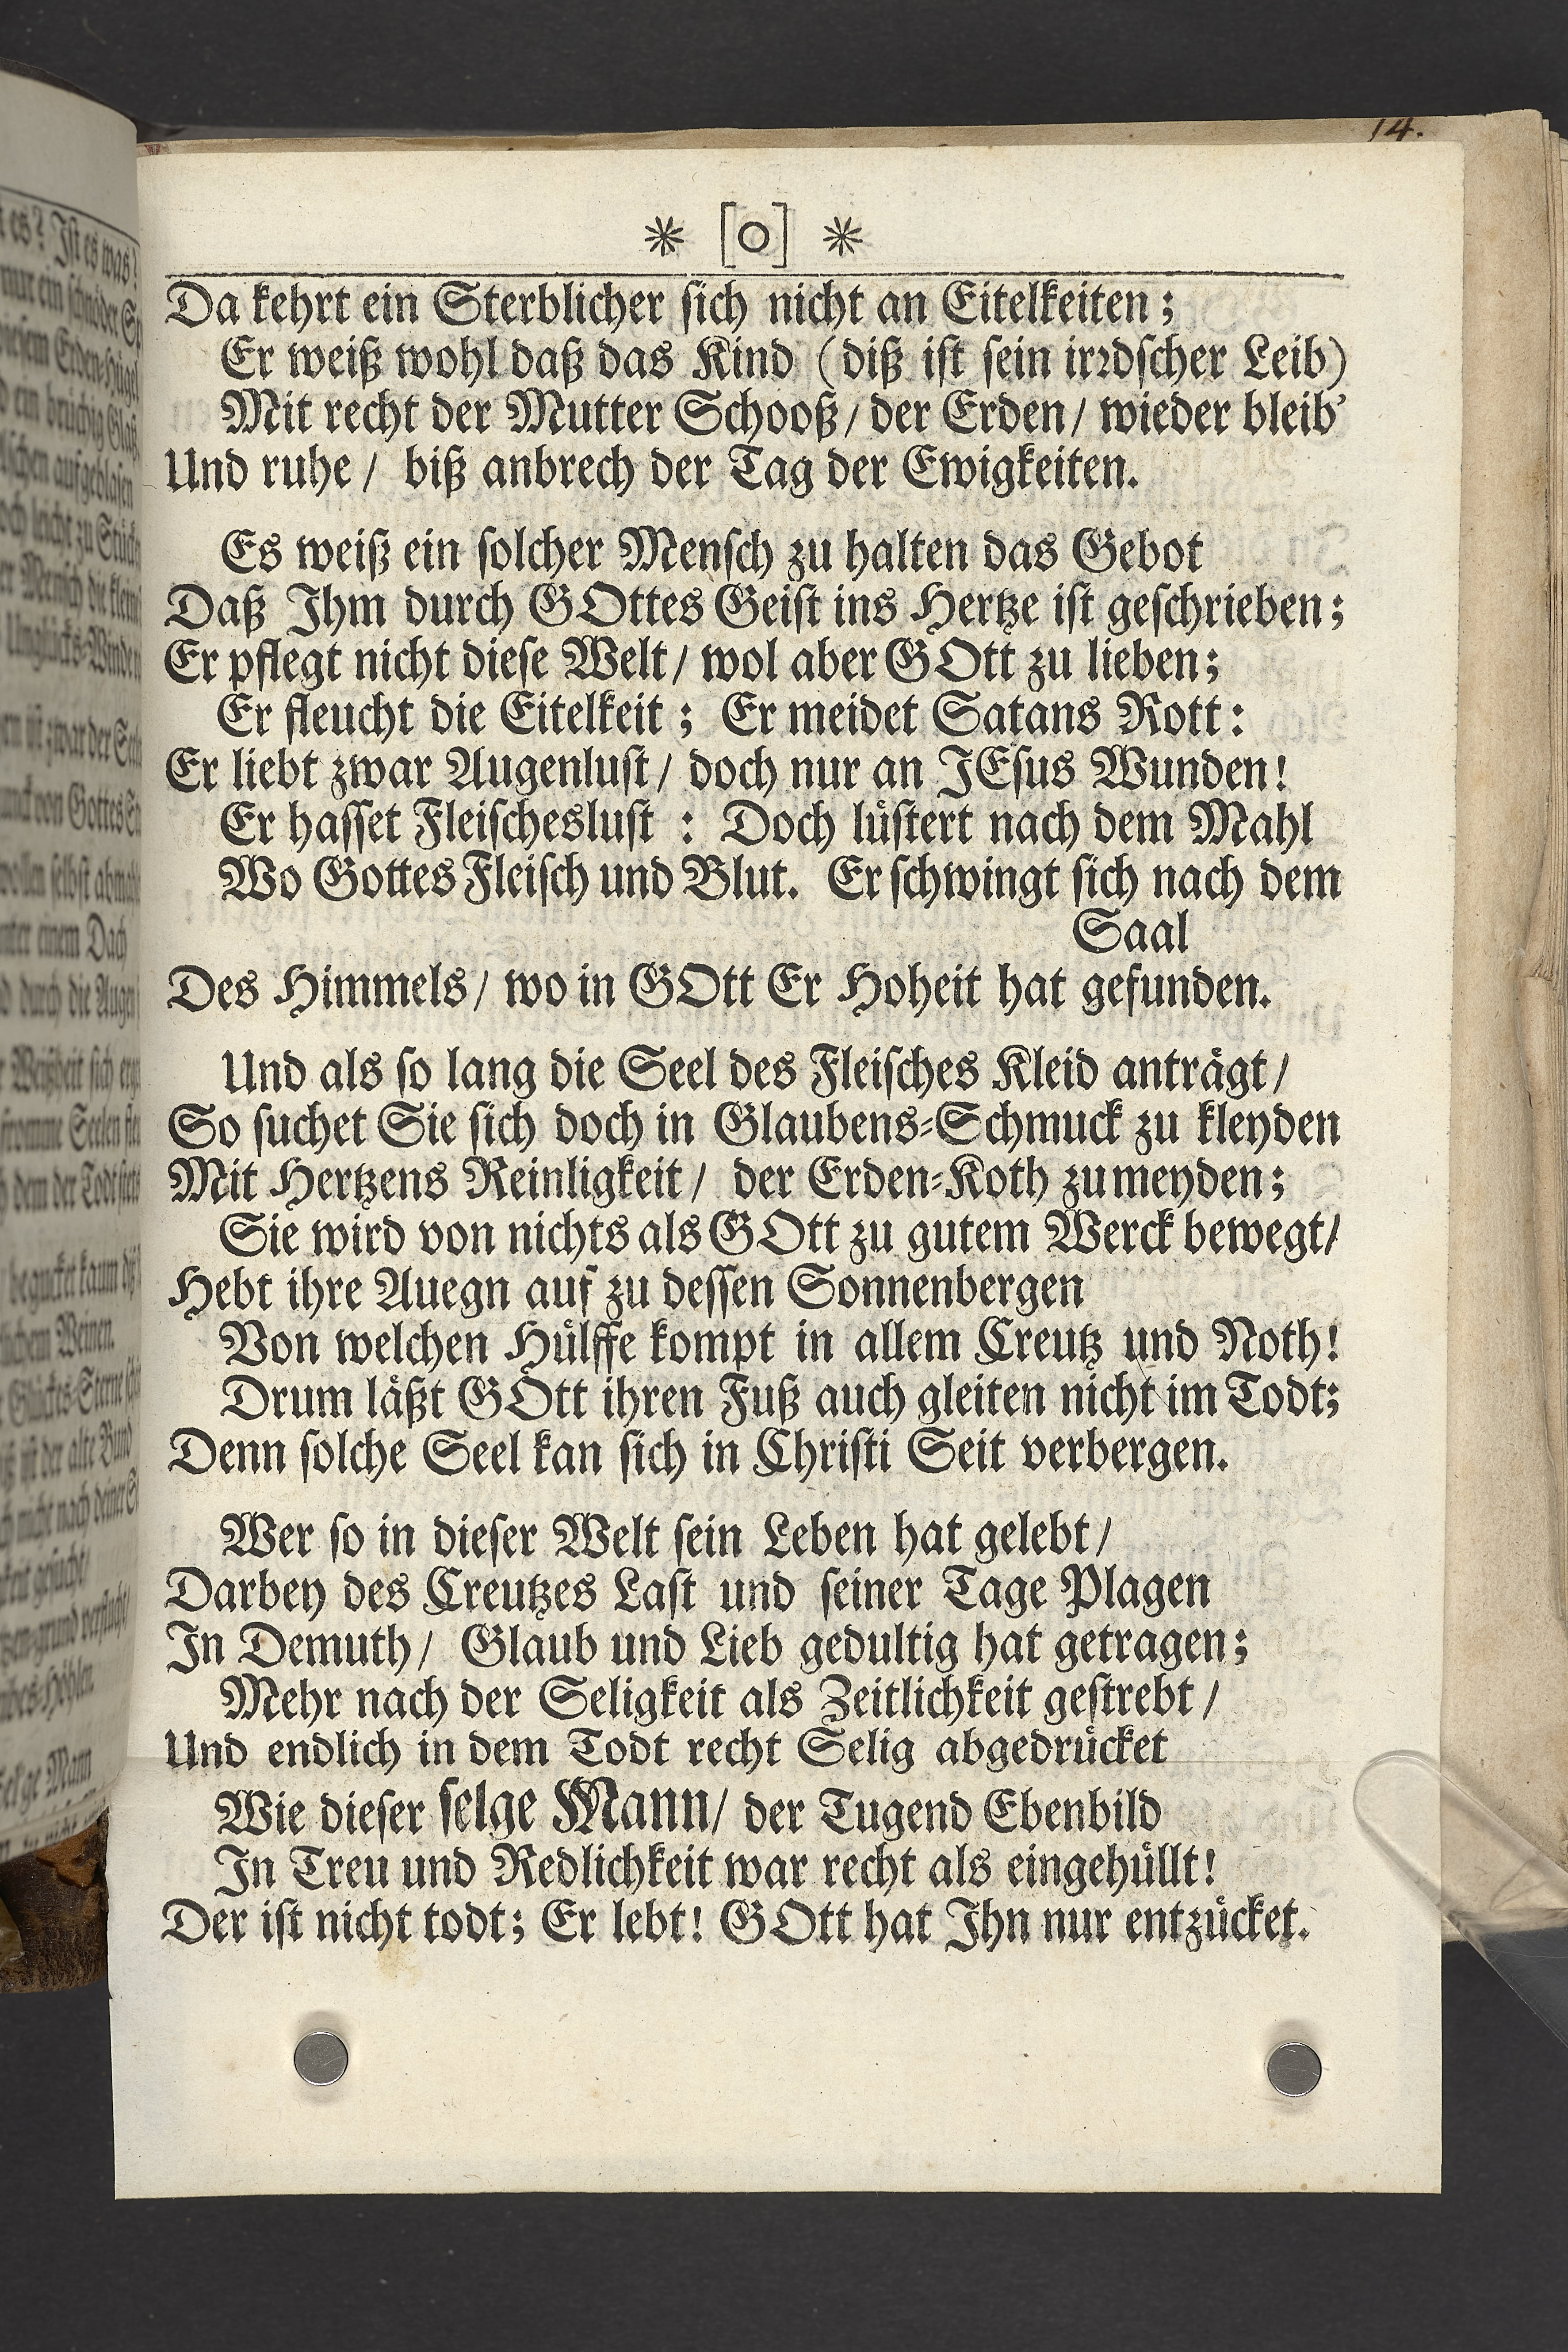 14.
* [o] *
Da kehrt ein Sterblicher sich nicht an Eitelkeiten;
Er weiß wohl daß das Kind (diß ist sein irꝛdscher Leib)
Mit recht der Mutter Schooß/ der Erden/ wieder bleib'
Und ruhe/ biß anbrech der Tag der Ewigkeiten.
Es weiß ein solcher Mensch zu halten das Gebot
Daß Ihm durch GOttes Geist ins Hertze ist geschrieben;
Er pflegt nicht diese Welt/ wol aber GOtt zu lieben;
Er fleucht die Eitelkeit; Er meidet Satans Rott:
Er liebt zwar Augenlust/ doch nur an JEsus Wunden!
Er hasset Fleischeslust : Doch lüstert nach dem Mahl
Wo Gottes Fleisch und Blut. Er schwingt sich nach dem
Saal
Des Himmels/ wo in GOtt Er Hoheit hat gefunden.
Und als so lang die Seel des Fleisches Kleid anträgt/
So suchet Sie sich doch in Glaubens-Schmuck zu kleyden
Mit Hertzens Reinligkeit/ der Erden-Koth zu meyden;
Sie wird von nichts als GOtt zu gutem Werck bewegt/
Hebt ihre Auegn auf zu dessen Sonnenbergen
Von welchen Hülffe kompt in allem Creutz und Noth!
Drum läßt GOtt ihren Fuß auch gleiten nicht im Todt;
Denn solche Seel kan sich in Christi Seit verbergen.
Wer so in dieser Welt sein Leben hat gelebt/
Darbey des Creutzes Last und seiner Tage Plagen
In Demuth/ Glaub und Lieb gedultig hat getragen;
Mehr nach der Seligkeit als Zeitlichkeit gestrebt/
Und endlich in dem Todt recht Selig abgedrücket
Wie dieser selge Mann/ der Tugend Ebenbild
In Treu und Redlichkeit war recht als eingehüllt!
Der ist nicht todt; Er lebt! GOtt hat Ihn nur entzücket.